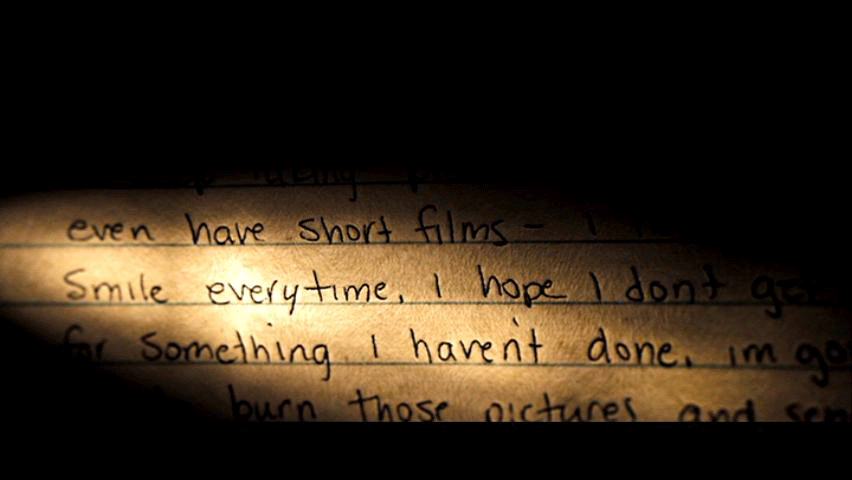 even have short films - I
Smile everytime, I hope I dont
for something I haven't done. im
burn those pictures and